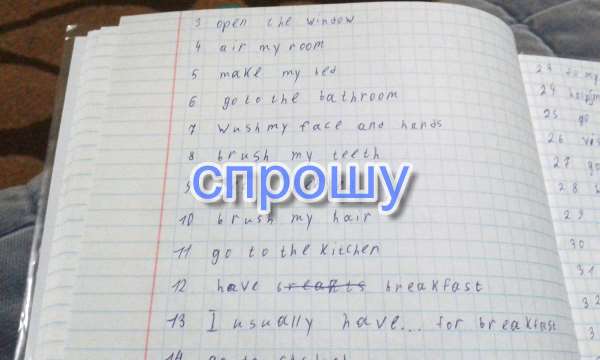 3 open the window
4 air my room
5 make my bed
6 go to the bathroom
7 wush my face and hands
8 brush my teeth
спрошу
9
10 brush my hair
11 go to the kitchen
12 have breakfast
13 I usually have... for breakfast
14 go to
24
25 go
26
27 go
28
29
30
31